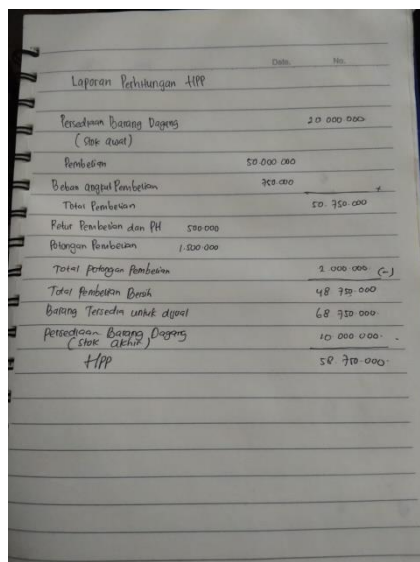 Date. No.
Laporan Perhitungan HPP
Persediaan Barang Dagang 20 000 000
(Stok awal)
Pembelian 50.000 000
Beban angkut Pembelian 750.000 +
Total Pembelian 50.750.000
Retur Pembelian dan PH 500.000
Potongan Pembelian 1.500.000
Total potongan Pembelian 2.000.000. (-)
Total Pembelian Bersih 48.750.000
Barang Tersedia untuk dijual 68.750 000.
Persediaan Barang Dagang 10 000 000. -
(Stok akhir)
HPP 58.750.000.